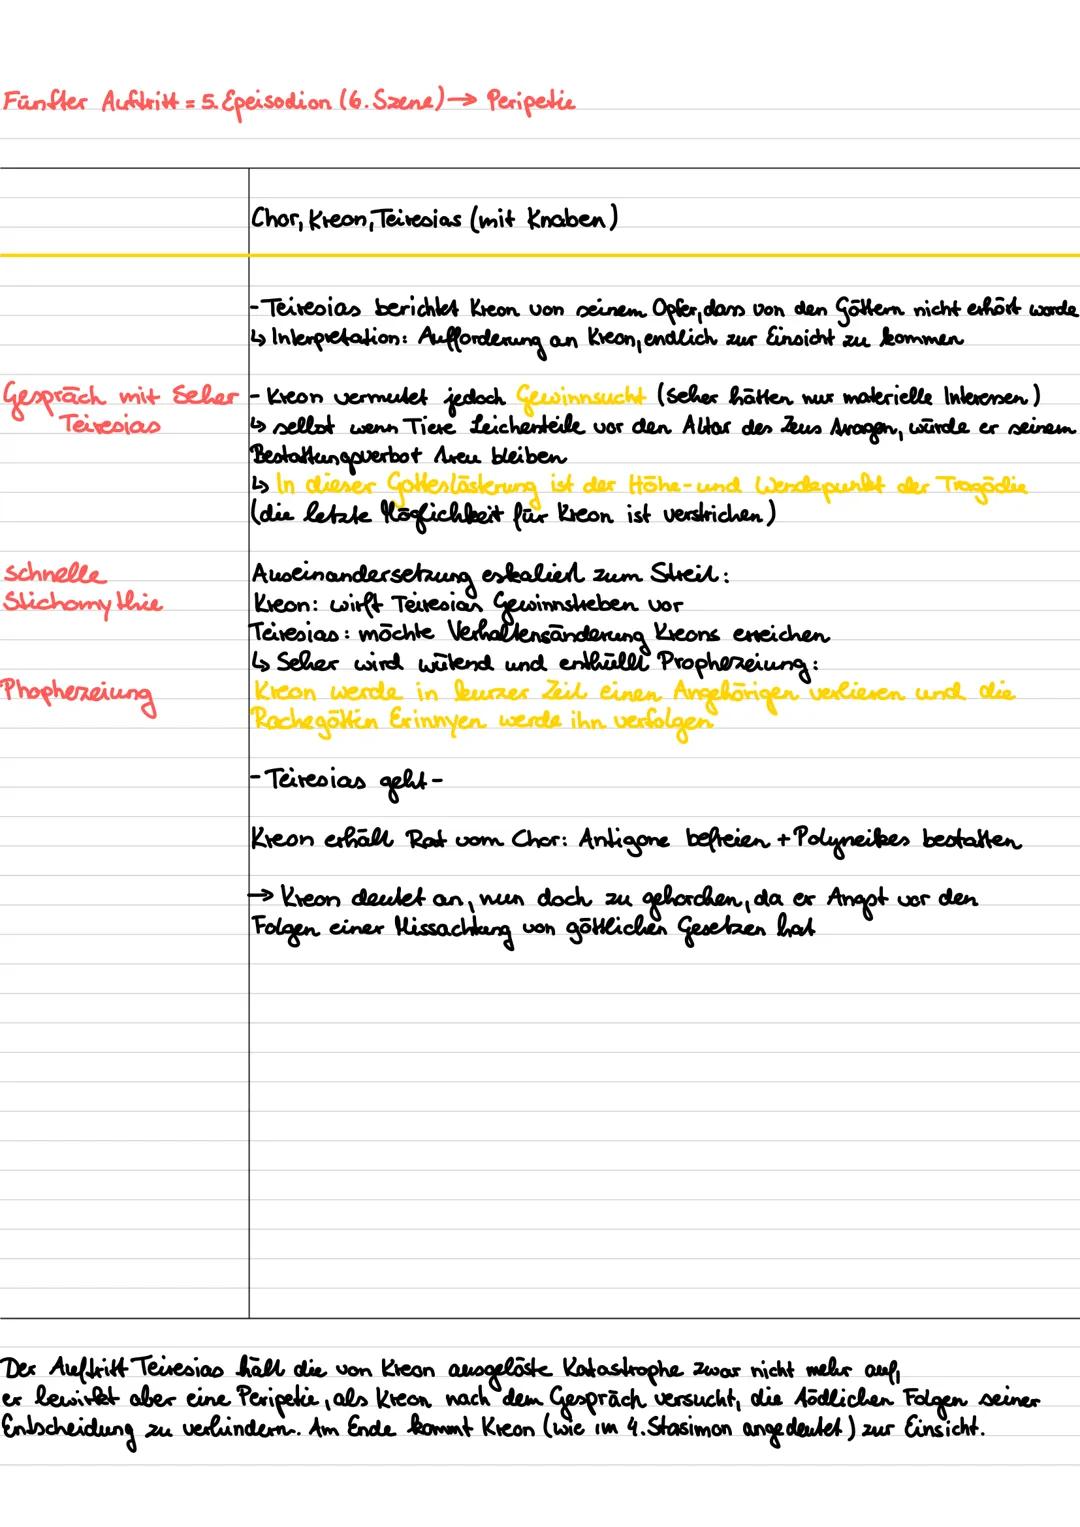 Fünfter Auftritt = 5. Epeisodion (6. Szene) → Peripetie
Chor, Kreon, Teiresias (mit Knaben)
- Teiresias berichtet Kreon von seinem Opfer, dass von den Göttern nicht erhört worde
↳ Interpretation: Aufforderung an Kreon, endlich zur Einsicht zu kommen
Gespräch mit Seher
Teiresias
- Kreon vermutet jedoch Gewinnsucht (Seher hätten nur materielle Interessen)
↳ selbst wenn Tiere Leichenteile vor den Altar des Zeus tragen, würde er seinem
Bestattungsverbot treu bleiben
↳ In dieser Gotteslästerung ist der Höhe- und Wendepunkt der Tragödie
(die letzte Möglichkeit für Kreon ist verstrichen)
schnelle
Stichomythie
Auseinandersetzung eskaliert zum Streit:
Kreon: wirft Teiresias Gewinnstreben vor
Teiresias: möchte Verhaltensänderung Kreons erreichen
↳ Seher wird wütend und enthüllt Prophezeiung:
Phophezeiung
Kreon werde in kurzer Zeit einen Angehörigen verlieren und die
Rachegöttin Erinnyen werde ihn verfolgen
- Teiresias geht -
Kreon erhält Rat vom Chor: Antigone befreien + Polyneikes bestatten
→ Kreon deutet an, nun doch zu gehorchen, da er Angst vor den
Folgen einer Missachtung von göttlichen Gesetzen hat
Der Auftritt Teiresias hält die von Kreon ausgelöste Katastrophe zwar nicht mehr auf,
er bewirkt aber eine Peripetie, als Kreon nach dem Gespräch versucht, die tödlichen Folgen seiner
Entscheidung zu verhindern. Am Ende kommt Kreon (wie im 4. Stasimon angedeutet) zur Einsicht.